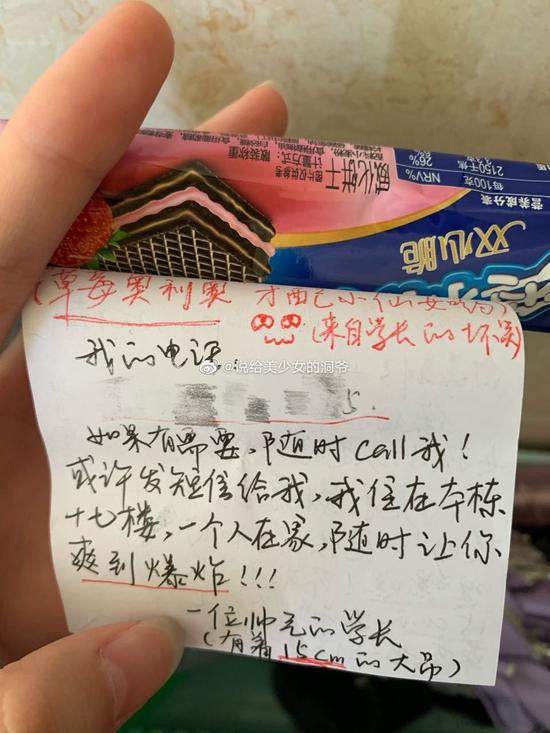 双心脆
威化饼干
图片仅供参考
计量方式：
散装称重
营养成分表
每100克
NRV%
2150千焦
26%
(草莓奥利奥 才配已小仙女的)
(来自学长的坏笑)
我的电话:
5.
@说给美少女的洞爷
如果有需要,随时call我!
或许发短信给我,我住在本栋
十七楼,一个人在家,随时让你
爽到爆炸!!!
一位帅气的学长
(有着15cm的大吊)